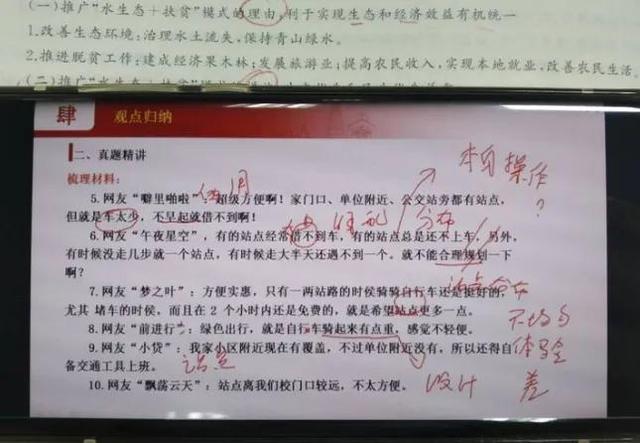 (一)推广“水生态+扶贫”模式的理由,利于实现生态和经济效益有机统一
1.改善生态环境:治理水土流失,保持青山绿水。
2.推进脱贫工作:建成经济果木林;发展旅游业;提高农民收入,实现本地就业,改善农民生活。
(二)推广“水生态+扶贫”
肆 观点归纳
二、真题精讲
梳理材料:
5.网友“噼里啪啦”:超级方便啊!家门口、单位附近、公交站旁都有站点,
但就是车太少,不早起就借不到啊!
6.网友“午夜星空”,有的站点经常借不到车,有的站点总是还不上车。另外,
有时候没走几步就一个站点,有时候走大半天还遇不到一个。就不能合理规划一下
啊?
7.网友“梦之叶”:方便实惠,只有一两站路的时侯骑骑自行车还是挺好的,
尤其 堵车的时侯,而且在 2 个小时内还是免费的,就是希望站点更多一点。
8.网友“前进行”:绿色出行,就是自行车骑起来有点重,感觉不轻便。
9.网友“小贷”:我家小区附近现在有覆盖,不过单位附近没有,所以还得自
备交通工具上班。
10.网友“飘荡云天”:站点离我们校门口较远,不太方便。
本身操作
?
分布
站点分布
不均匀
体验
差
站点
设计